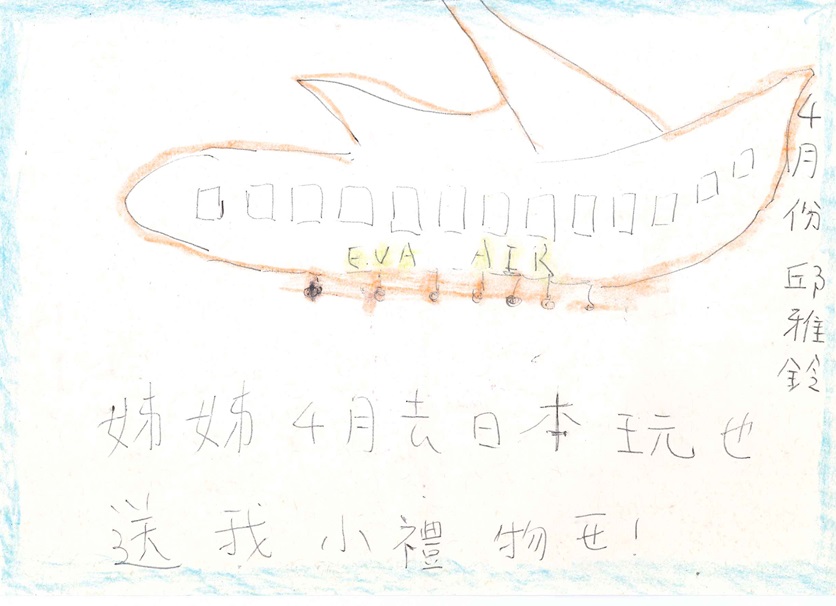 4月份 邱雅鈴
EVA AIR
姊姊4月去日本玩也
送我小禮物ㄝ!